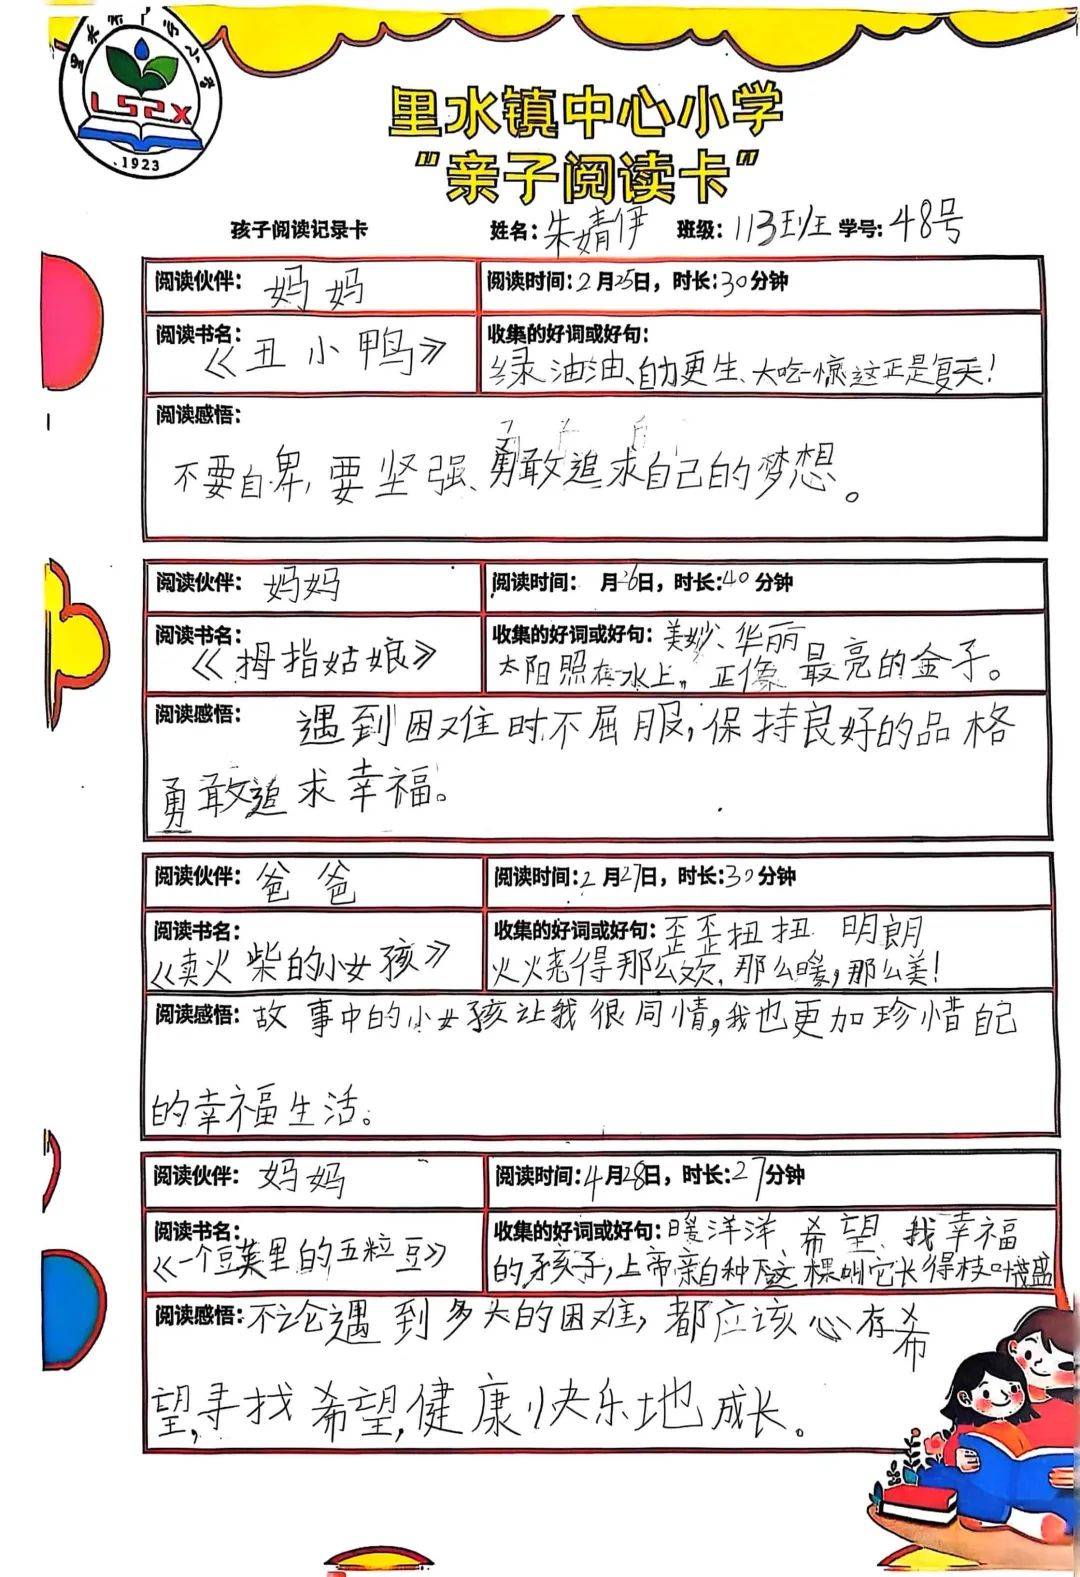 里水镇中心小学
LSZX
1923
里水镇中心小学
“亲子阅读卡”
孩子阅读记录卡 姓名:朱婧伊 班级:113班 学号:48号
阅读伙伴:妈妈 阅读时间:2月25日，时长:30分钟
阅读书名:《丑小鸭》
收集的好词或好句:
绿油油、自力更生、大吃一惊这正是夏天!
阅读感悟:
不要自卑,要坚强、勇敢追求自己的梦想。
阅读伙伴:妈妈 阅读时间: 月26日，时长:40分钟
阅读书名:《拇指姑娘》
收集的好词或好句:美妙、华丽
太阳照在水上,正像最亮的金子。
阅读感悟: 遇到困难时不屈服,保持良好的品格
勇敢追求幸福。
阅读伙伴:爸爸 阅读时间:2月27日，时长:30分钟
阅读书名:
《卖火柴的小女孩》
收集的好词或好句:歪歪扭扭 明朗
火火尧得那么欢,那么暖,那么美!
阅读感悟:故事中的小女孩让我很同情,我也更加珍惜自己
的幸福生活。
阅读伙伴:妈妈 阅读时间:4月28日，时长:27分钟
阅读书名:
《一个豆荚里的五粒豆》
收集的好词或好句:暖洋洋 希望、我幸福
的孩子,上帝亲自种下这棵叫它长得枝叶茂盛
阅读感悟:不论遇到多大的困难,都应该心存希
望,寻找希望,健康快乐地成长。